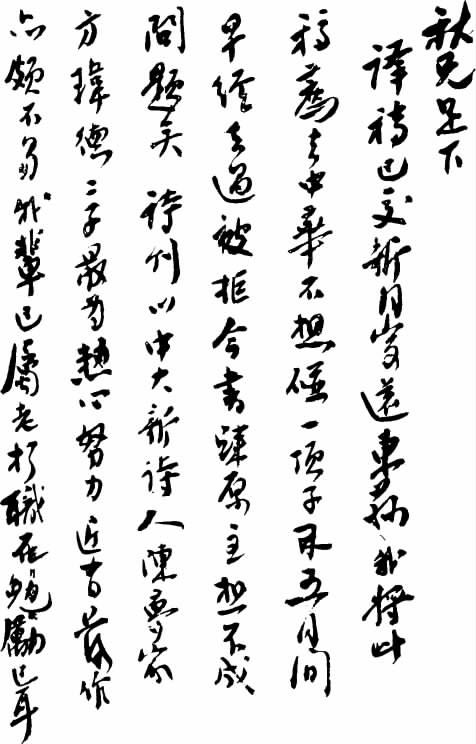 秋兄足下
譯稿已交新月寄還東蓀我將此
稿薦去中華不想碰一頂子因五月間
早經去過被拒今書歸原主想不成
問題矣 詩刊以中大新詩人陳夢家
方瑋德二子最為熱心努力近有長作
亦頗不易我輩已屬老朽職在勉勵已耳